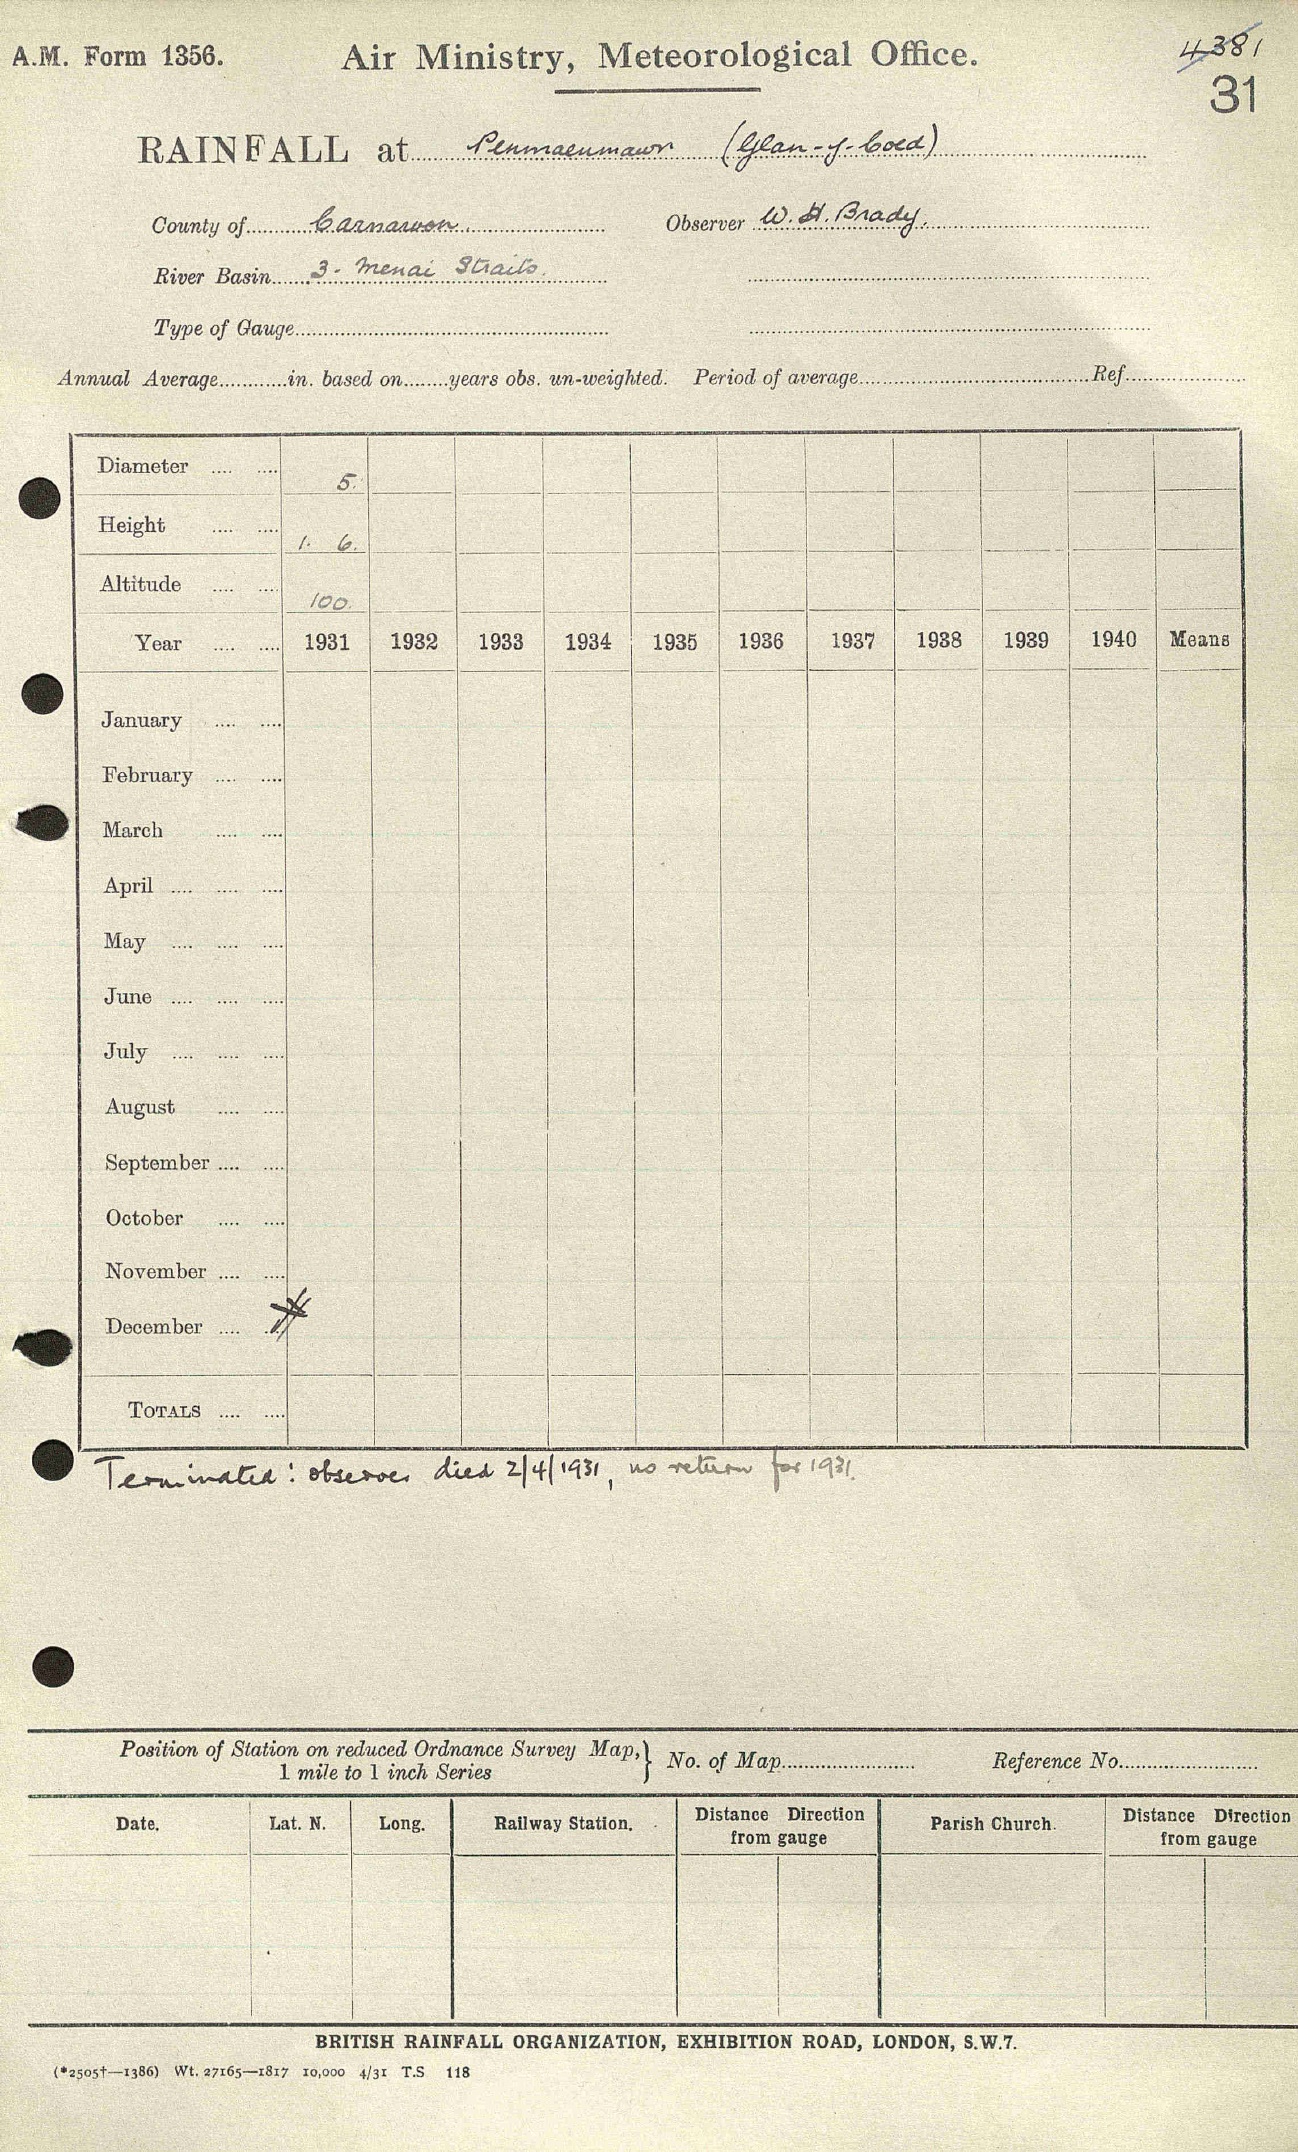 A.M. Form 1356.
Air Ministry, Meteorological Office.
4381
31
RAINFALL at Penmaenmawr (Glan-y-Coed)
County of Carnarvon. Observer W. H. Brady.
River Basin 3. Menai Straits.
Type of Gauge
Annual Average in. based on years obs. un-weighted. Period of average Ref.
Diameter 5.
Height 1. 6.
Altitude 100.
Year 1931 1932 1933 1934 1935 1936 1937 1938 1939 1940 Means
January
February
March
April
May
June
July
August
September
October
November
December
TOTALS
Terminated: observer died 2/4/1931, no return for 1931.
Position of Station on reduced Ordnance Survey Map,} No. of Map Reference No.
1 mile to 1 inch Series
Date. Lat. N. Long. Railway Station. Distance Direction from gauge Parish Church. Distance Direction from gauge
BRITISH RAINFALL ORGANIZATION, EXHIBITION ROAD, LONDON, S.W.7.
(*2505†—1386) Wt. 27165—1817 10,000 4/31 T.S 118